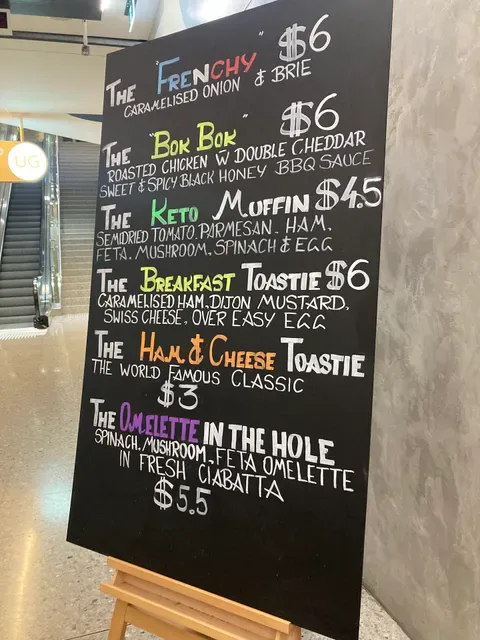 The "FRENCHY" $6
CARAMELISED ONION & BRIE
THE "BOK BOK" $6
ROASTED CHICKEN W DOUBLE CHEDDAR
SWEET & SPICY BLACK HONEY BBQ SAUCE
THE KETO MUFFIN $4.5
SEMIDRIED TOMATO. PARMESAN. HAM.
FETA. MUSHROOM. SPINACH & EGG
THE BREAKFAST TOASTIE $6
CARAMELISED HAM. DIJON MUSTARD,
SWISS CHEESE, OVER EASY EGG
THE HAM & CHEESE TOASTIE
THE WORLD FAMOUS CLASSIC
$3
THE OMELETTE IN THE HOLE
SPINACH. MUSHROOM. FETA OMELETTE
IN FRESH CIABATTA
$5.5
UG